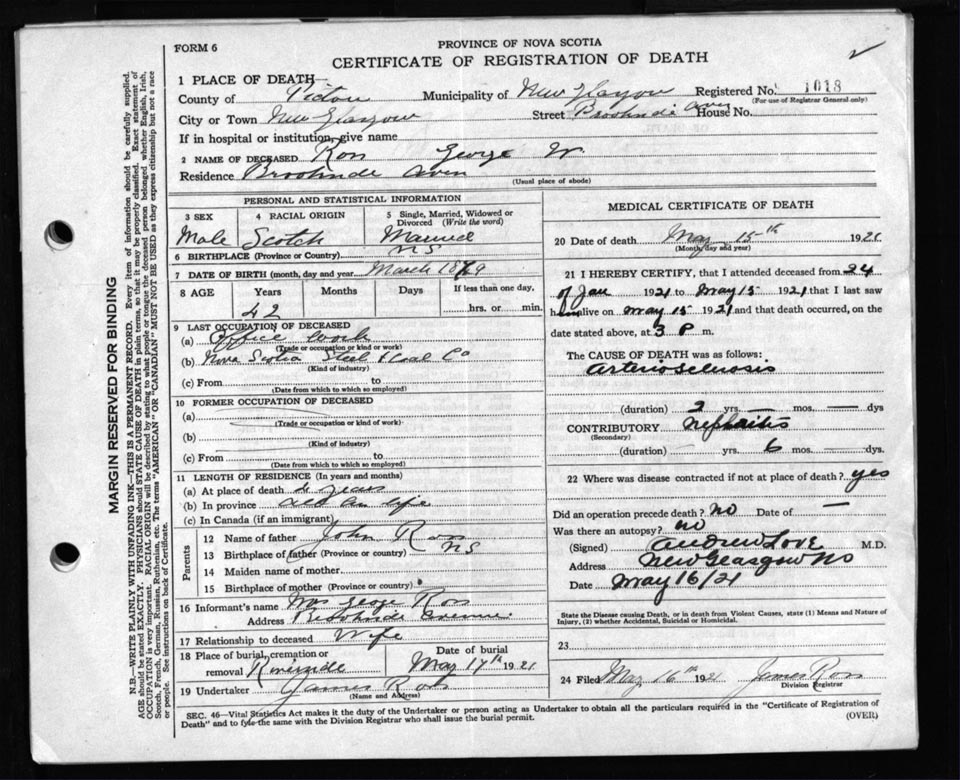 FORM 6
PROVINCE OF NOVA SCOTIA
CERTIFICATE OF REGISTRATION OF DEATH
1 PLACE OF DEATH—
County of Pictou Municipality of New Glasgow Registered No. 1018
(For use of Registrar General only)
City or Town New Glasgow Street Brookside Aven House No.
If in hospital or institution, give name
2 NAME OF DECEASED Ross George W.
Residence Brookside Aven
(Usual place of abode)
PERSONAL AND STATISTICAL INFORMATION
3 SEX 4 RACIAL ORIGIN 5 Single, Married, Widowed or Divorced (Write the word)
Male Scotch Married
6 BIRTHPLACE (Province or Country) N.S
7 DATE OF BIRTH (month, day and year) March 1879
8 AGE Years Months Days If less than one day,
42 hrs. or min.
9 LAST OCCUPATION OF DECEASED
(a) Office work
(Trade or occupation or kind of work)
(b) Nova Scotia Steel & Coal Co
(Kind of industry)
(c) From to
(Date from which to which so employed)
10 FORMER OCCUPATION OF DECEASED
(a)
(Trade or occupation or kind of work)
(b)
(Kind of industry)
(c) From to
(Date from which to which so employed)
11 LENGTH OF RESIDENCE (In years and months)
(a) At place of death years
(b) In province life
(c) In Canada (if an immigrant)
Parents
12 Name of father John Ross
13 Birthplace of father (Province or country) N S
14 Maiden name of mother
15 Birthplace of mother (Province or country)
16 Informant's name Mrs George Ross
Address Brookside Avenue
17 Relationship to deceased Wife
18 Place of burial, cremation or removal Riverside
Date of burial May 17th 1921
19 Undertaker James Ross
(Name and Address)
MEDICAL CERTIFICATE OF DEATH
20 Date of death May 15th 1921
(Month, day and year)
21 I HEREBY CERTIFY, that I attended deceased from 24
of Jan 1921 to May 15 1921 that I last saw
him alive on May 15 1921 and that death occurred, on the
date stated above, at 3 P m.
The CAUSE OF DEATH was as follows:
Arteriosclerosis
(duration) 2 yrs. — mos. — dys
CONTRIBUTORY Nephritis
(Secondary)
(duration) yrs. 6 mos. — dys.
22 Where was disease contracted if not at place of death? yes
Did an operation precede death? no Date of —
Was there an autopsy? no
(Signed) Andrew Love M.D.
Address New Glasgow NS
Date May 16/21
State the Disease causing Death, or in death from Violent Causes, state (1) Means and Nature of
Injury, (2) whether Accidental, Suicidal or Homicidal.
23
24 Filed May 16th 1921 James Ross
Division Registrar
SEC. 46—Vital Statistics Act makes it the duty of the Undertaker or person acting as Undertaker to obtain all the particulars required in the "Certificate of Registration of
Death" and to file the same with the Division Registrar who shall issue the burial permit.
(OVER)
MARGIN RESERVED FOR BINDING
N.B.—WRITE PLAINLY WITH UNFADING INK—THIS IS A PERMANENT RECORD. Every item of information should be carefully supplied.
AGE should be stated EXACTLY. PHYSICIANS should STATE CAUSE OF DEATH in plain terms, so that it may be properly classified. Exact statement of
OCCUPATION is very important. RACIAL ORIGIN will be described by stating to what people or tongue the deceased person belonged whether English, Irish,
Scotch, French, German, Russian, Ruthenian, etc. The terms "AMERICAN" OR "CANADIAN" MUST NOT BE USED as they express citizenship but not a race
or people. See instructions on back of Certificate.